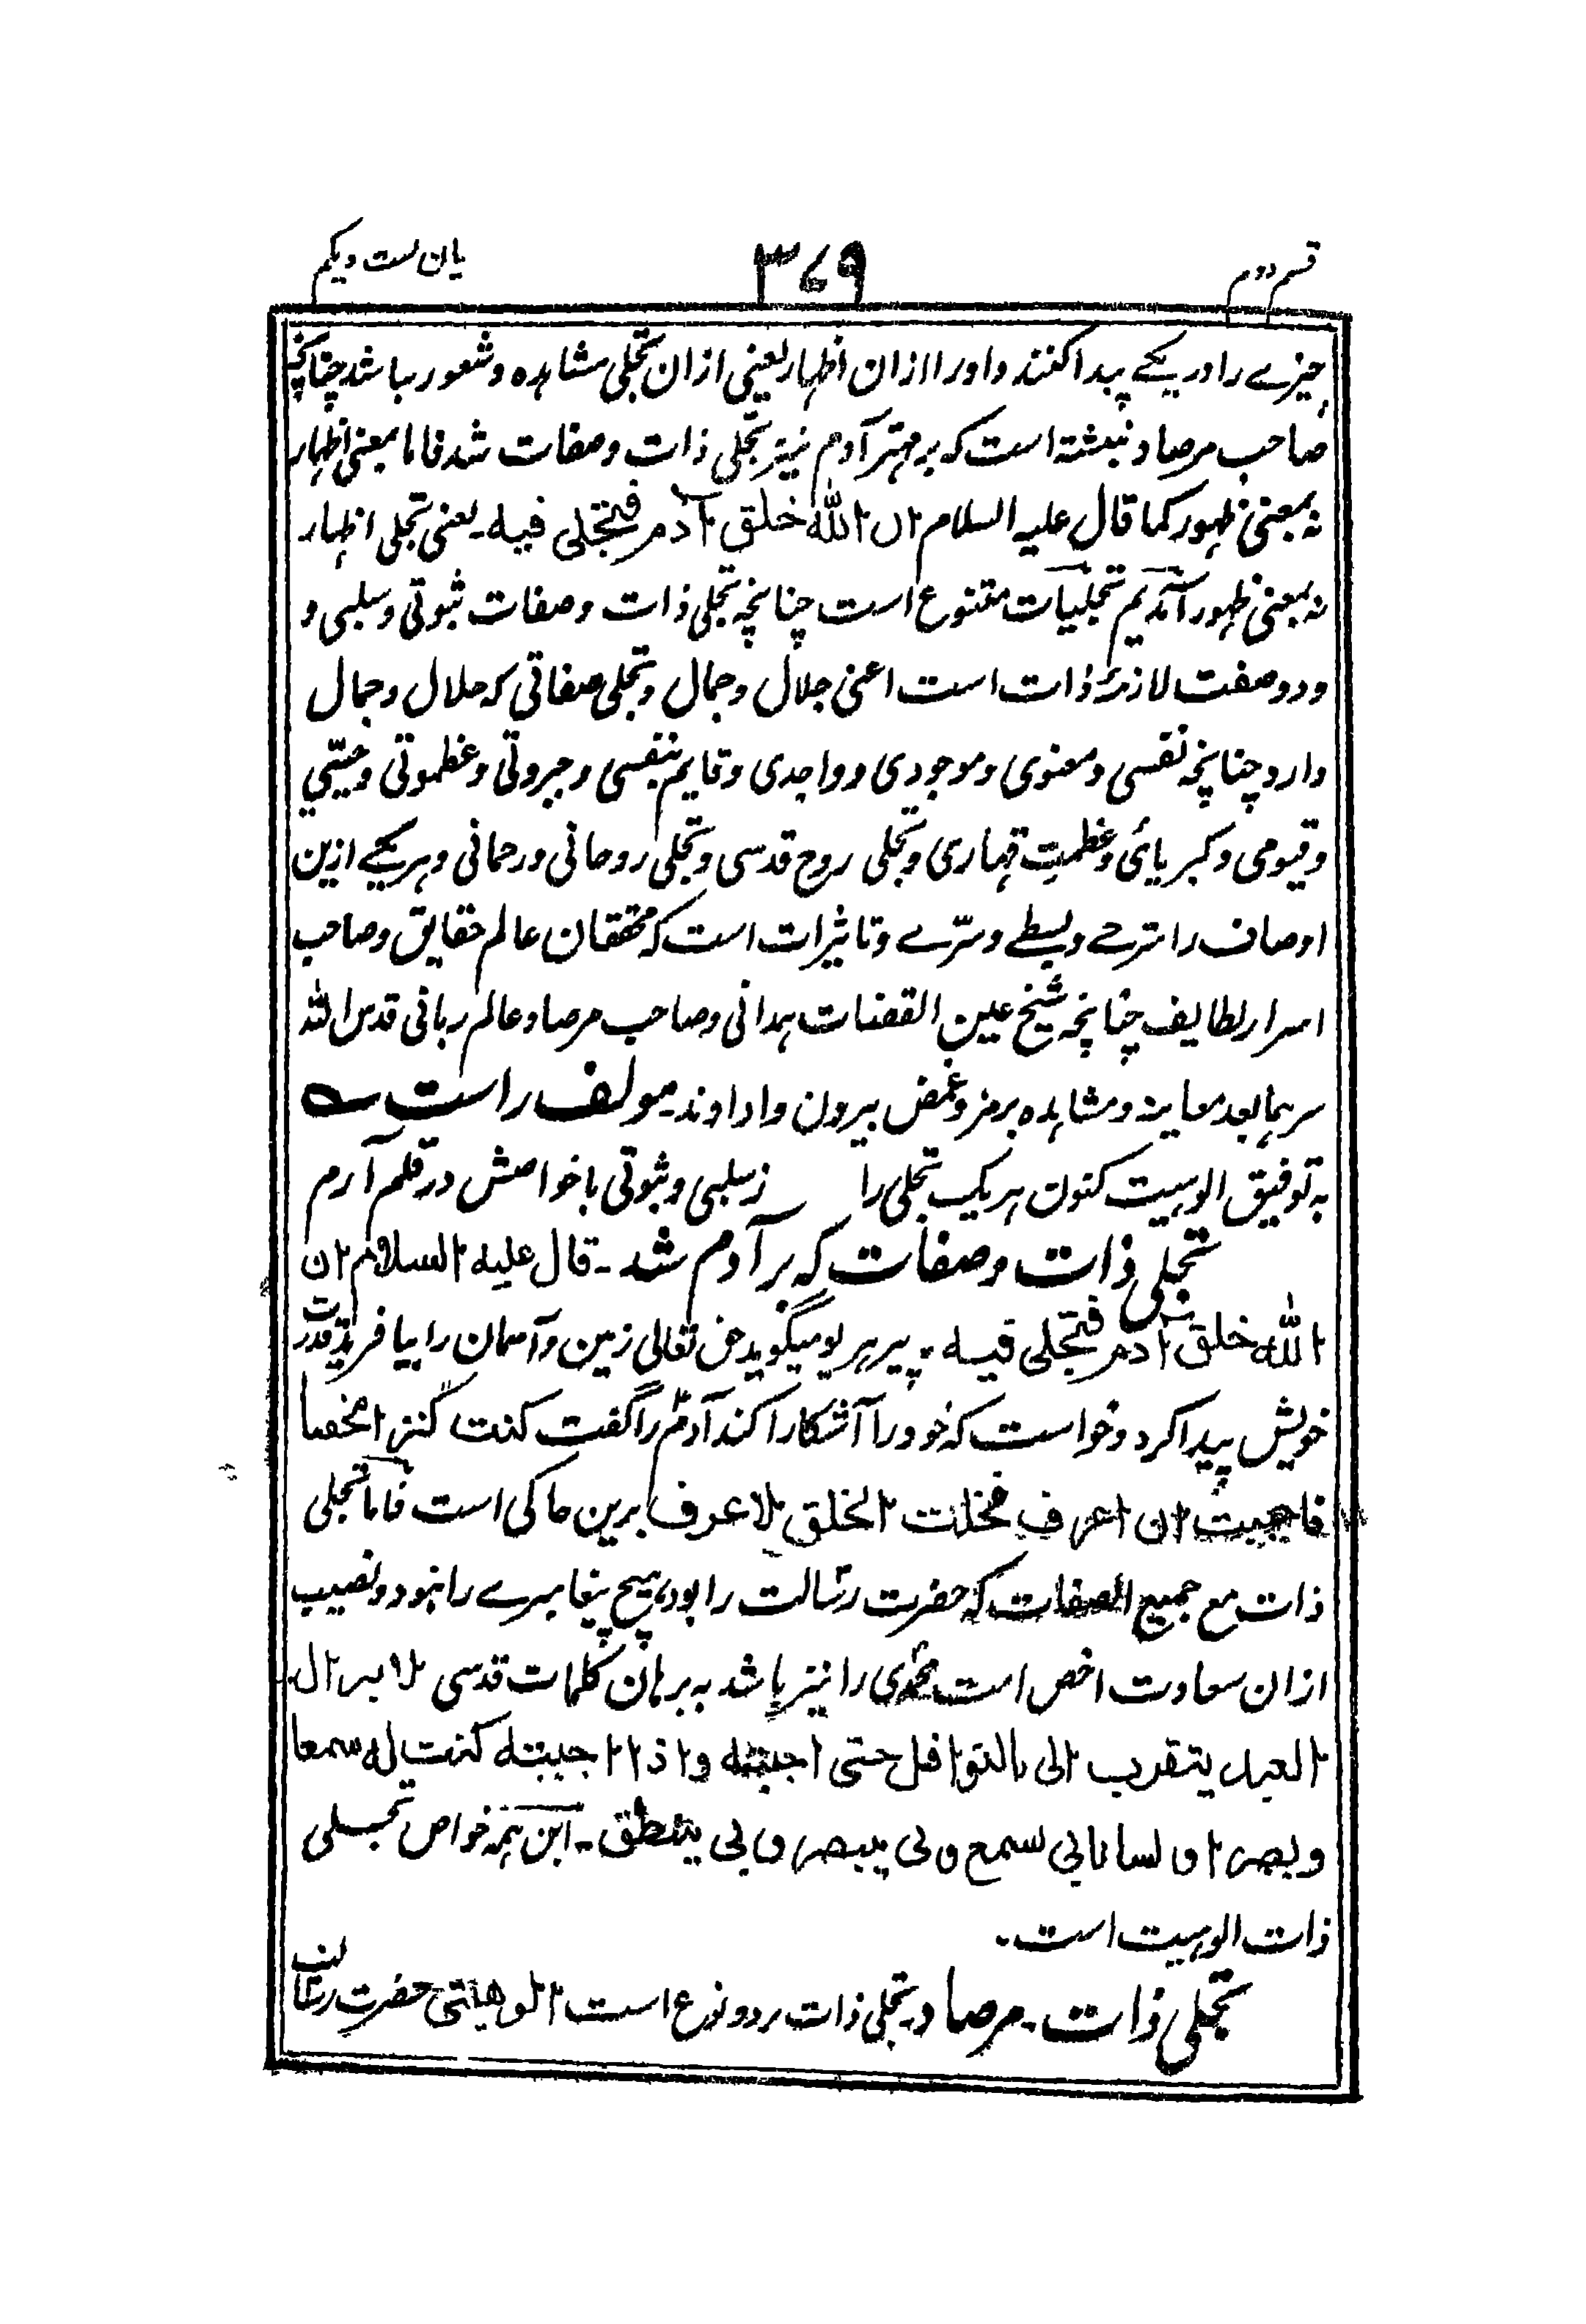 قسم دوم ۳۷۹ بیان بست و یکم
چیزے را در یکے پیدا کنند و او را ازان اظہار یعنی ازان تجلی مشاہدہ و شعور نباشد چنانچہ
صاحب مرصاد نبشتہ است کہ بر مہتر آدم نیز تجلی ذات و صفات شد فاما بمعنی اظہار
نہ بمعنی ظہور کما قال علیہ السلام ان اللہ خلق آدم فتجلی فیہ ۔ یعنی تجلی اظہار
نہ بمعنی ظہور آمدیم تجلیات متنوع است چنانچہ تجلی ذات و صفات ثبوتی و سلبی و
و دو صفت لازمۂ ذات است اعنی جلال و جمال و تجلی صفاتی کہ جلال و جمال
دارد چنانچہ نفسی و معنوی و موجودی و واجدی و قایم بنفسی و جبروتی و عظموتی و حیّی
و قیومی و کبریائی و عظمت قہاری و تجلی روح قدسی و تجلی روحانی و رحمانی و ہر یکے ازین
اوصاف را شرحے و بسطے و سرّے و تاثیرات است کہ محققان عالم حقایق و صاحب
اسرار لطایف چنانچہ شیخ عین القضات ہمدانی و صاحب مرصاد عالم ربانی قدس اللہ
سرہما بعد معاینہ و مشاہدہ برمز و غمض بیرون دادہ اند ۔ مولف راست ؎
بہ توفیق الوہیت کنون ہر یک تجلی را زسلبی و ثبوتی با خواصش در قلم آرم
تجلی ذات و صفات کہ بر آدم شد ۔ قال علیہ السلام ان
اللہ خلق آدم فتجلی فیہ ۔ پیر ہریو میگوید حق تعالی زمین و آسمان را بیافرید قدرت
خویش پیدا کرد و خواست کہ خود را آشکارا کند آدمؑ را گفت کنت کنزا مخفیا
فاحببت ان اعرف فخلقت الخلق لاعرف برین حاکی است فاما تجلی
ذات مع جمیع الصفات کہ حضرت رسالت را بود ہیچ پیغامبرے را نبود و نصیب
ازان سعادت اخص امت محمدی را نیز باشد بہ برہان کلمات قدسی لا یزال
العبد یتقرب الی بالنوافل حتی احببتہ و اذا احببتہ کنت لہ سمعا
و بصرا و لسانا بی یسمع و بی یبصر و بی ینطق ۔ این ہمہ خواص تجلی
ذات الوہیت است ۔
تجلی ذات ۔ مرصاد ۔ تجلی ذات بر دو نوع است الوہیتی حضرت رسالت